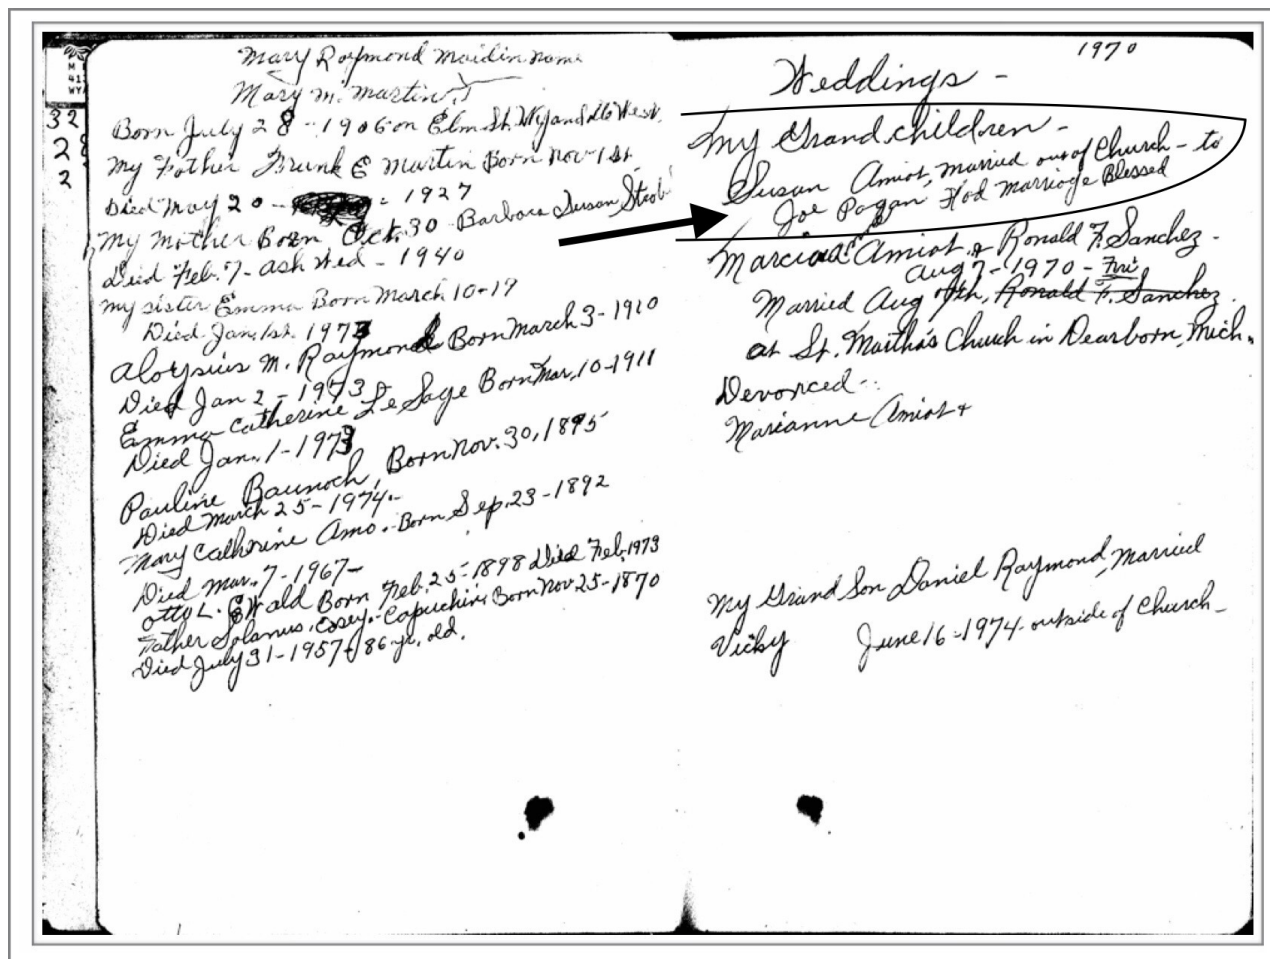 Mary Raymond Maidin name
Mary M. Martin
Born July 28 - 1906 on Elm St. Wyandotte West.
My Father Frank E Martin Born Nov 1st
Died May 20 - 1927
My Mother Born Oct. 30 - Barbara Susan Strob
Died Feb. 7 - Ash Wed - 1940
my sister Emma Born March 10-19
Died Jan. 1st. 1973
Aloysius M. Raymond Born March 3-1910
Died Jan 2 - 1973
Emma Catherine LeSage Born Mar. 10-1911
Died Jan. 1-1973
Pauline Baunoch, Born Nov. 30, 1895
Died March 25-1974-
Mary Catherine Amo. - Born Sep. 23-1892
Died Mar. 7-1967-
Otto L. Ewald Born Feb. 25-1898 Died Feb. 1973
Father Solanus. Casey - Capuchin Born Nov 25-1870
Died July 31-1957-86 yr. old.
32
2
2
1970
Weddings -
My Grand children -
Susan Amiot, married out of Church - to
Joe Pagan Had Marriage Blessed
Marcia Amiot & Ronald F. Sanchez -
Aug 7-1970 - Fri
Married Aug 7th, Ronald F. Sanchez
at St. Martha's Church in Dearborn, Mich.
Devorced -
Marianne Amiot +
My Grand Son Daniel Raymond, Married
Vicky June 16-1974 - outside of Church -